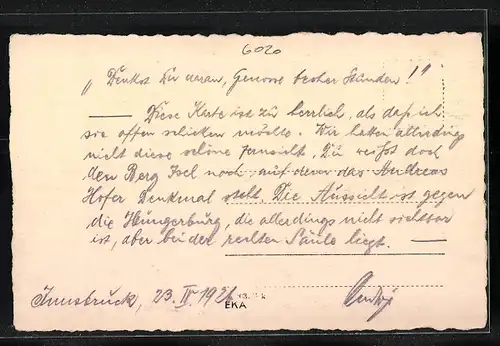 6020
„Denkst du daran, Genosse froher Stunden!"
— Diese Karte ist zu herrlich, als daß ich
sie offen schicken möchte. Wir hatten allerdings
nicht diese schöne Fernsicht. Du weißt doch
den Berg Isel noch, auf dem das Andreas
Hofer Denkmal steht. Die Aussicht ist gegen
die Hungerburg, die allerdings nicht sichtbar
ist, aber bei der rechten Säule liegt. —
Innsbruck, 23. IV. 192
EKA